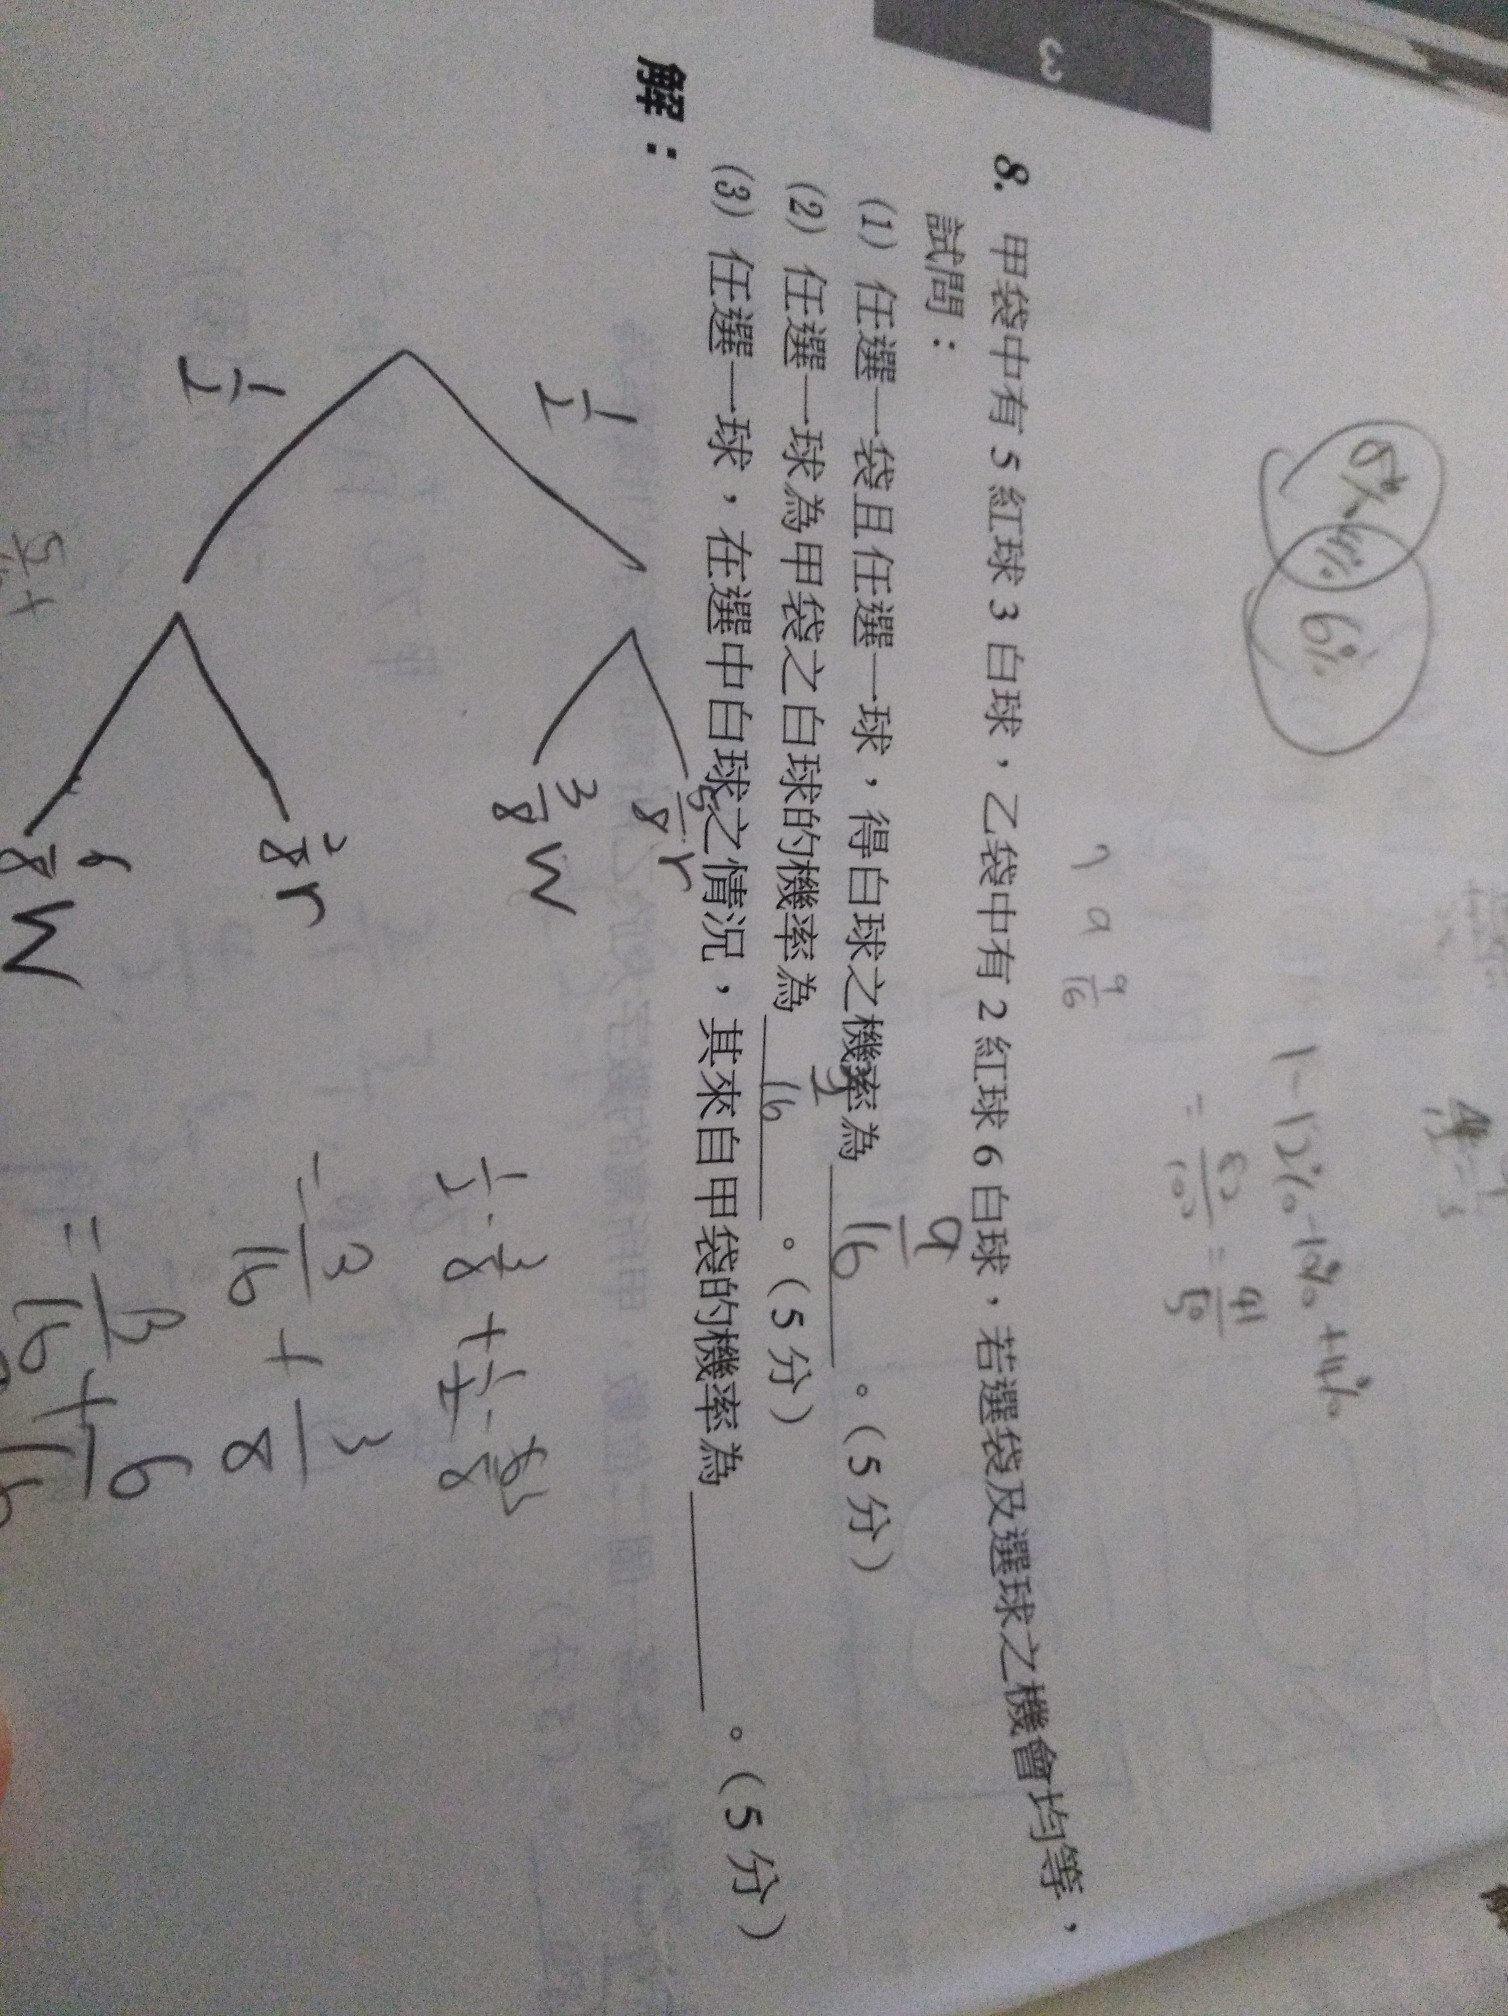 3
5% 4% 6%
1-12%-10%+4%
= 82/100 = 41/50
9/16
8. 甲袋中有 5 紅球 3 白球，乙袋中有 2 紅球 6 白球，若選袋及選球之機會均等，
試問：
(1) 任選一袋且任選一球，得白球之機率為 9/16 。(5 分)
(2) 任選一球為甲袋之白球的機率為 3/16 。(5 分)
(3) 任選一球，在選中白球之情況，其來自甲袋的機率為 。(5 分)
解：
1/2 5/8 r
3/8 W
1/2 2/8 r
6/8 W
1/2 · 3/8 + 1/2 · 6/8
= 3/16 + 3/8
= 3/16 + 6/16